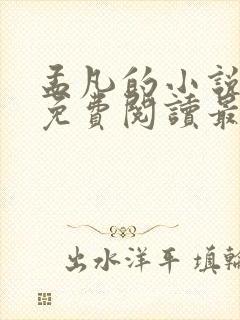 孟凡的小說
免費閱讀最
出水洋平 填輪